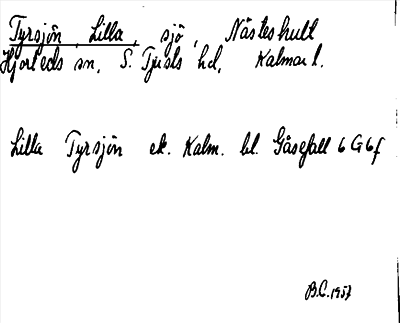 Tyrsjön, Lilla, sjö, Nåsteshult
Hjorteds sn, S. Tjusts hd, Kalmar l.
Lilla Tyrsjön ek. Kalm. bl. Gåsefall 6 G 6 f
B.C. 1957